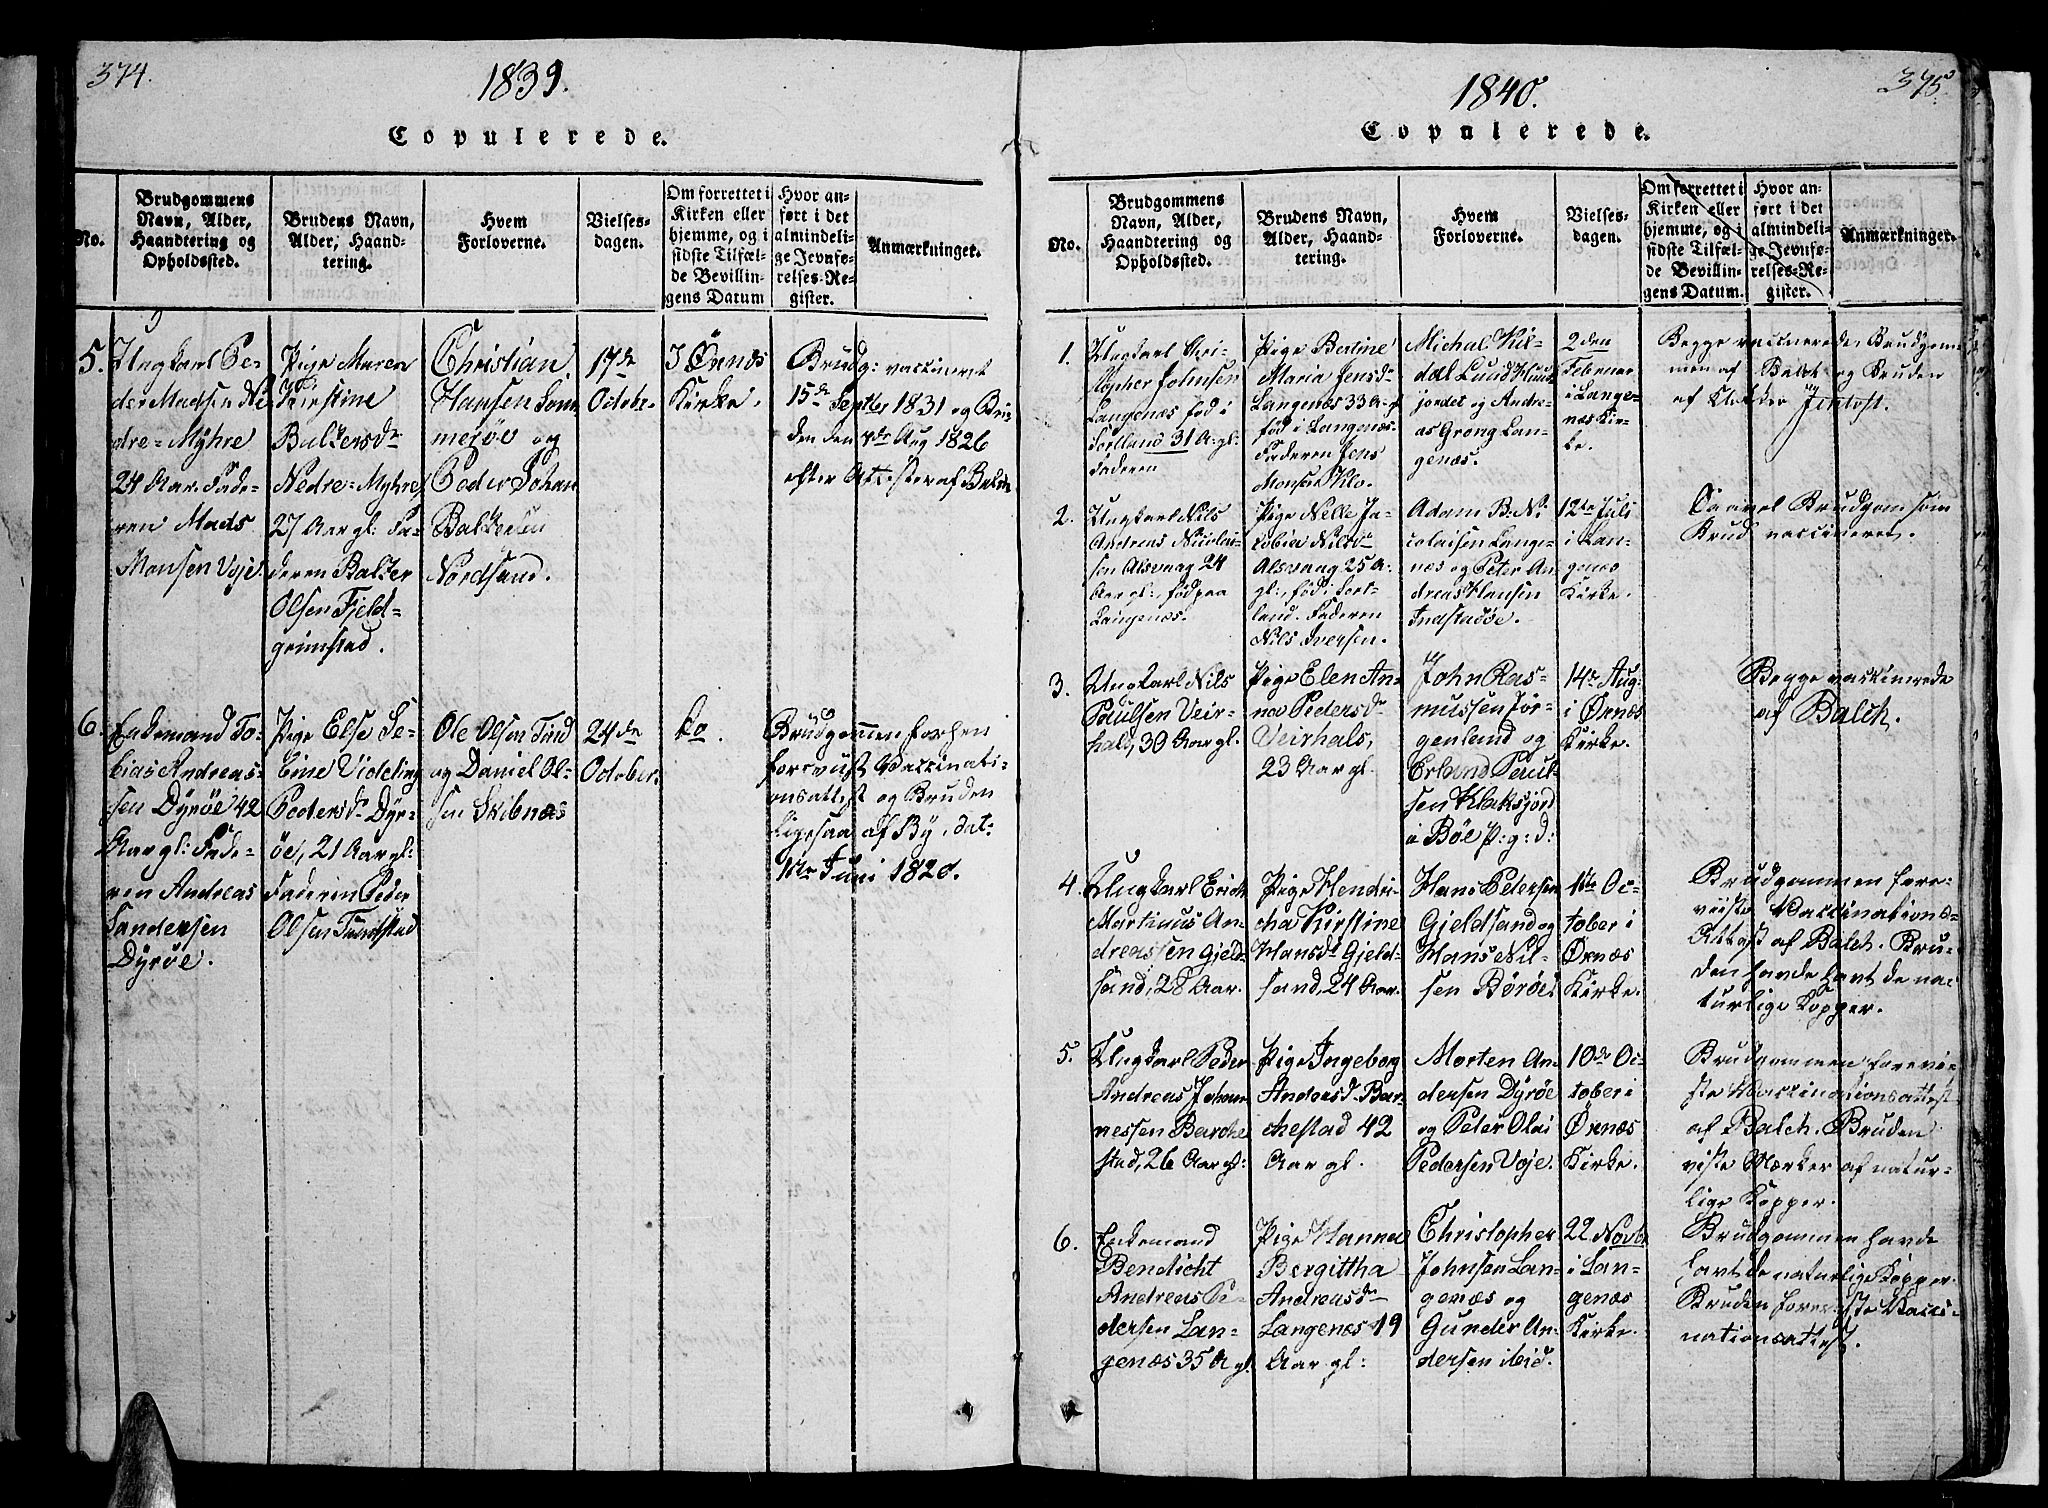 374.
1839.
Copulerede.
No.
Brudgommens Navn, Alder, Haandtering og Opholdssted.
Brudens Navn, Alder, Haandtering.
Hvem Forloverne.
Vielsesdagen.
Om forrettet i Kirken eller hjemme, og i sidste Tilfælde Bevillingens Datum
Hvor anført i det almindelige Jevnførelses-Register.
Anmærkninger.
5.
Ungkarl Pe-
der Madsen Ne-
dre-Myhre
24 Aar. Fade-
ren Mads
Monsen Voje.
Pige Maren
Kirstine
Baltzersdr
Nedre-Myhre
27 Aar gl: Fa-
deren Baltzer
Olsen Fjeld-
grimstad.
Christian
Hansen Som-
merøe og
Peder Johan
Baltzersen
Nordsand.
17de
October
I Örnæs
Kirke.
Brudg: vaccineret
15de Septbr 1831 og Bru-
den den Aug 1826
efter Attester af Balch
6.
Enkemand To-
bias Andreas-
sen Dyrøe 42
Aar gl: Fade-
ren Andreas
Sandersen
Dyrøe.
Pige Else Se-
Eine Videling
Pedersdr Dyr-
øe, 21 Aar gl:
Faderen Peder
Olsen Tundstad
Ole Olsen Tind
og Daniel Ol-
sen Skibnæs
24de
October
do.
Brudgommen forhen
forevist Vaccinati-
onsattest og Bruden
ligesaa af By, dat:
Juni 1820.
375.
1840.
Copulerede.
No.
Brudgommens Navn, Alder, Haandtering og Opholdssted.
Brudens Navn, Alder, Haandtering.
Hvem Forloverne.
Vielsesdagen.
Om forrettet i Kirken eller hjemme, og i sidste Tilfælde Bevillingens Datum.
Hvor anført i det almindelige Jevnførelses-Register.
Anmærkninger.
1.
Ungkarl Chri-
stopher Johnsen
Langenæs fød i
Sortland 31 A: gl:
Faderen
Pige Bertine
Maria Jensdr
Langenæs 33 A: gl
fød i Langenæs
Faderen Jens
Monsen Klo.
Michal Kil-
dal Lund
jordet og Andre-
as Grong Lan-
genæs.
2den
Februar
i Lange-
næs Kir-
ke.
Begge vaccinerede, Brudgom-
men af Balch og Bruden
af Klokker Jentoft.
2.
Ungkarl Nils
Andreas Nicolai-
sen Alsvaag 24
Aar gl:, fød paa
Langenæs.
Pige Nille Ja-
cobia Nilsdr
Alsvaag 25 A:
gl:, fød i Sort-
land. Faderen
Nils Iversen.
Adam B: Ni-
colaisen Lange-
næs og Peter An-
dreas Hansen
Indstadøe.
12te Juli
i Lan-
genæs
Kirke.
Saavel Brudgom som
Brud vaccineret.
3.
Ungkarl Nils
Paulsen Veir-
hals, 30 Aar gl.
Pige Elen An-
na Pedersdr
Veirhals,
23 Aar gl.
John Ras-
mussen Jør-
genlund og
Erland Paul-
sen Klaksjord
i Bøe P: g: d:
14de Aug:
i Ørnæs
Kirke.
Begge vaccinerede
af Balch.
4.
Ungkarl Erich
Martinus An-
dreassen Gjeld-
sand, 28 Aar.
Pige Hendri-
cha Kirstine
Hansdr Gjeld-
sand, 24 Aar.
Hans Petersen
Gjeldsand og
Hans Nil-
sen Børøe
Oc-
tober i
Ørnæs
Kirke.
Brudgommen fore-
viiste Vaccinations-
Attest af Balch. Bru-
den havde havt de na-
turlige Kopper.
5.
Ungkarl Peder
Andreas Johan-
nessen Barche-
stad, 26 Aar gl:
Pige Ingeborg
Andersdr Bar-
chestad 42
Aar gl.
Morten An-
dersen Dyrøe
og Peter Olai
Pedersen Voje.
10de Oc-
tober i
Ørnæs
Kirke.
Brudgommen forevi-
ste Vaccinationsattest
af Balch. Bruden
viste Mærker af natur-
lige Kopper.
6.
Enkemand
Bendicht
Andreas Pe-
dersen Lan-
genæs 35 A gl.
Pige Hanna
Bergittha
Andreasdr
Langenæs 19
Aar gl:
Christopher
Johnsen Lan-
genæs og
Gunder An-
dersen ibid.
22 Novbr
i Lan-
genæs
Kirke.
Brudgommen havde
havt de naturlige Kopper
Bruden foreviste Vacci-
nationsattest.